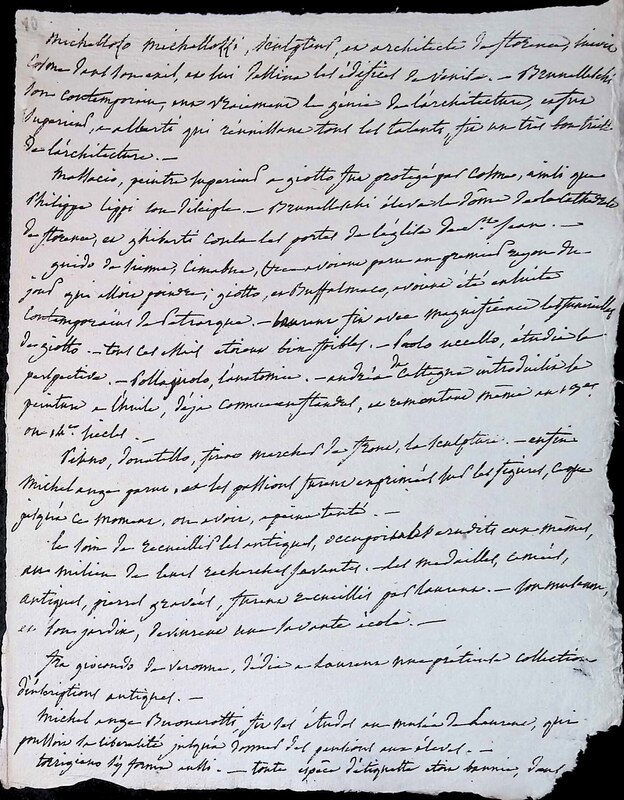 90
Michellozo Michellozzi, sculpteur, et architecte de florence, suivit
Cosme dans son exil, et lui dessina les édifices de venise. — Brunelleschi
son contemporain, eut vraiment le génie de l'architecture, et fut
supérieur, a alberti qui réunissant tous les talents, fit un très bon traité
de l'architecture. —
Massacio, peintre supérieur a giotto fut protégé par Cosme, ainsi que
Philippe Lippi son disciple. — Brunelleschi éleva le dôme de la cathédrale
de florence, et ghiberti coula les portes de l'église de St. Jean. —
guido de sienne, Cimabue, avoient paru au premier rayon du
jour qui alloit poindre; giotto, et Buffalmaco, avoient été ensuite
contemporains de Petrarque. — Laurent fit avec magnificence les funérailles
de giotto. — tous ces étoient bien foibles. — Paolo uccello, étudia la
perspective. — Pollagnolo, l'anatomie. — andréa de Castagna introduisit la
peinture a l'huile, déjà connue en flandre, et remontant même au 13me.
ou 14me. siècle. —
donatello, firent marcher de front, la sculpture. — enfin
Michel ange parut, et les passions furent exprimées sur les figures, ce que
jusqu'à ce moment, on avoit, a peine tenté. —
le soin de recueillir les antiques, occupoit les érudits eux mêmes,
au milieu de leurs recherches savantes. — Les medailles, camées,
antiques, pierres gravées, furent recueillis par Laurent. — Son museum,
et son jardin, devinrent une savante école. —
fra giocondo de veronne, dédia a Laurent une précieuse collection
d'inscriptions antiques. —
Michel ange Buonarotti, fit ses études au musée de Laurent, qui
poussoit la libéralité jusqu'à donner des pensions aux élèves. —
torrigiano s'y forma aussi. — toute espèce d'étiquette étoit bannie, dans